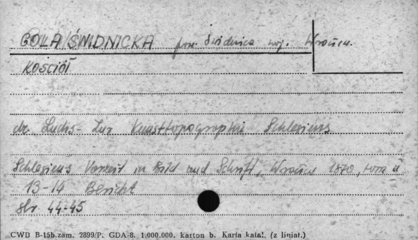 GOŁA ŚWIDNICKA pow. Świdnica woj. Wrocław.
KOŚCIÓŁ
dr. Luchs - Zur Kunsttopographie Schlesiens
Schlesiens Vorzeit in Bild und Schrift, Wrocław 1870,
13-14 Bericht
str 44-45
CWD B-15b zam. 2899/P. GDA-8. 1.000.000. karton b. Karta katal. (z liniat.)